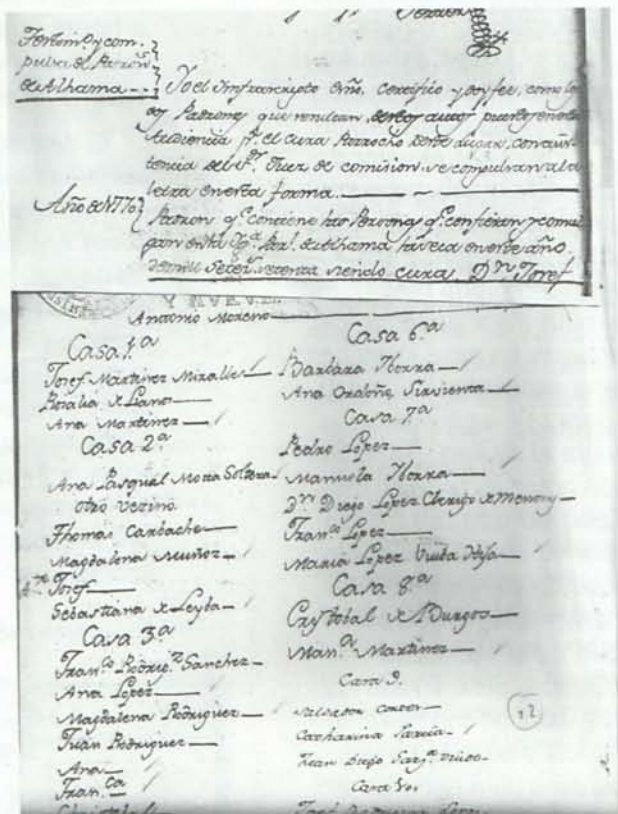 Testim.º y com-
pulsa de Padron.s
de Alhama --
Yo el Infrascripto Essno. certifico y doy fee, como los
dos Padrones que resultan de estos autos puestos en esta
Audiencia p.r el cura Parrocho de este Lugar, con asis-
tencia del S.r Juez de comision se compulsan a la
letra en esta forma.
Año de 1770
Padron q.e contiene las Personas q.e confiesan y comul
gan en esta Ig.a Par.l de Alhama la seca en este año
de mill Setez.s setenta siendo cura Dn Josef
Y NUEVE
Antonio Moreno
Casa 1.a
Josef Martinez Miralles
Rosalia de Llanos
Ana Martinez
Casa 2.a
Ana Pasqual Moza Soltera
otro vezino
Thomas Carbache
Magdalena Muñoz
Josef
Sebastiana de Leyba
Casa 3.a
Fran.co Rodrig.z Sanchez
Ana Lopez
Magdalena Rodriguez
Juan Rodriguez
Ana
Fran.ca
Casa 6.a
Barbara Yborra
Ana Ordoñe Sirvienta
Casa 7.a
Pedro Lopez
Manuela Yborra
Dn Diego Lopez Clerigo de Menores
Fran.co Lopez
Maria Lopez Viuda Hija
Casa 8.a
Crystobal de Burgos
Man.a Martinez
Casa 9.
Salbador
Catharina Garcia
Juan Diego
Casa 10.